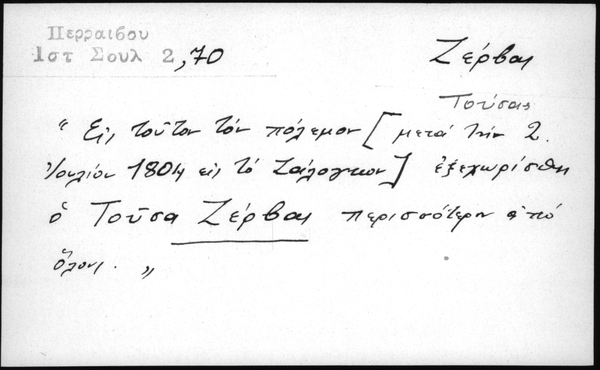 Περραιβου
Ιστ Σουλ 2,70
Ζέρβας
Τούσας
"Εἰς τοῦτον τὸν πόλεμον [μετά τὴν 2.
Ἰουλίου 1804 εἰς τό Ζάλογκον] ἐξεχωρίσθη
ὁ Τοῦσα Ζέρβας περισσότερον ἀπό
ὅλους. "